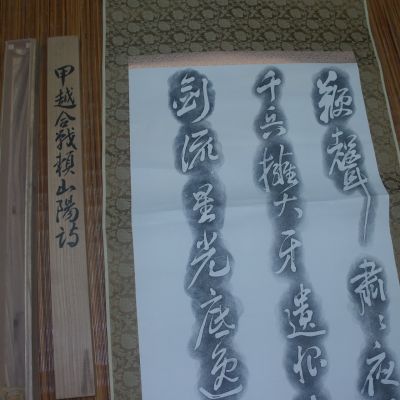 鞭聲肅〻夜
千兵擁大牙遺恨
劍流星光底逸
甲越合戦頼山陽詩